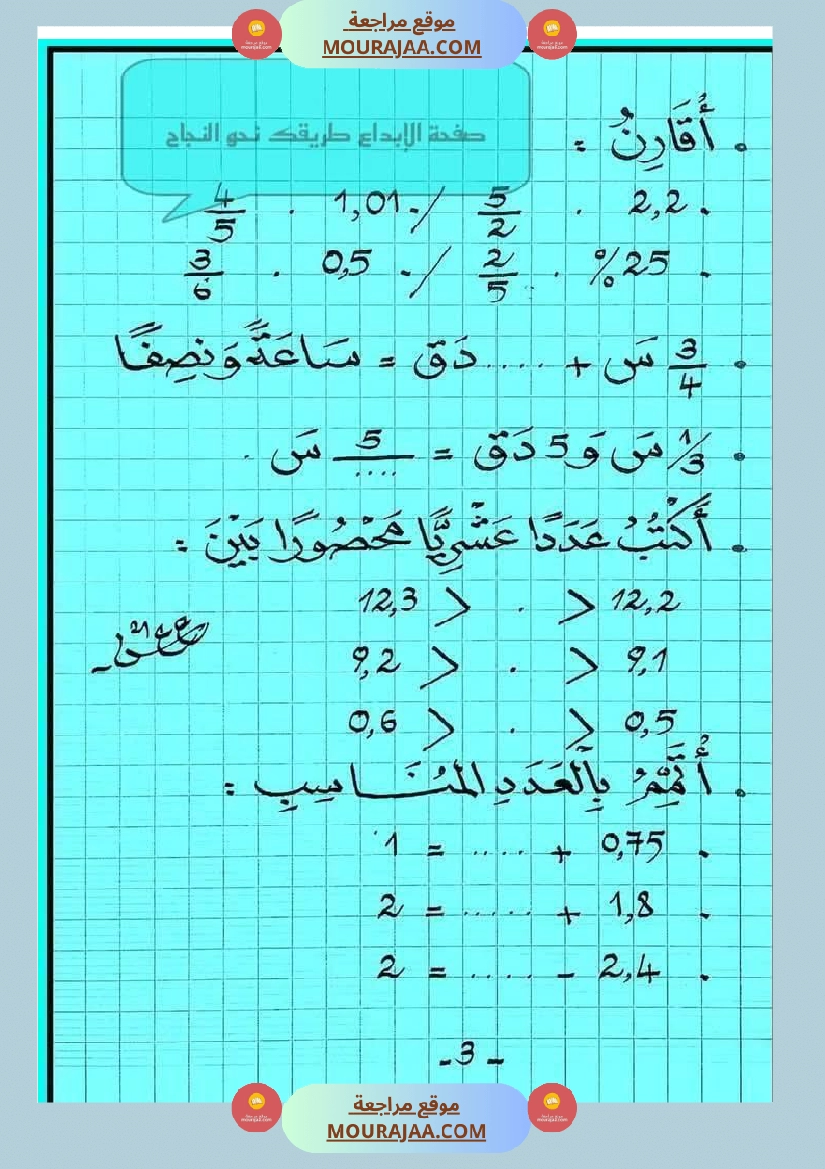 موقع مراجعة
MOURAJAA.COM
صفحة الإبداع طريقك نحو النجاح
. أُقَارِنُ :
. 2,2 . 5/2 /. 1,01 . 4/5
. 25% . 2/5 /. 0,5 . 3/6
. 3/4 سَ + .... دَق = سَاعَةً وَنِصِفًا
. 1/3 سَ وَ 5 دَق = 5/.... سَ .
. أَكْتُبُ عَدَدًا عَشْرِيًّا مَحْصُورًا بَيْنَ :
12,2 < . < 12,3
9,1 < . < 9,2
0,5 < . < 0,6
. أُتَمِّمُ بِالْعَدَدِ المُنَاسِبِ :
. 0,75 + .... = 1
. 1,8 + ..... = 2
. 2,4 - .... = 2
-3-
موقع مراجعة
MOURAJAA.COM